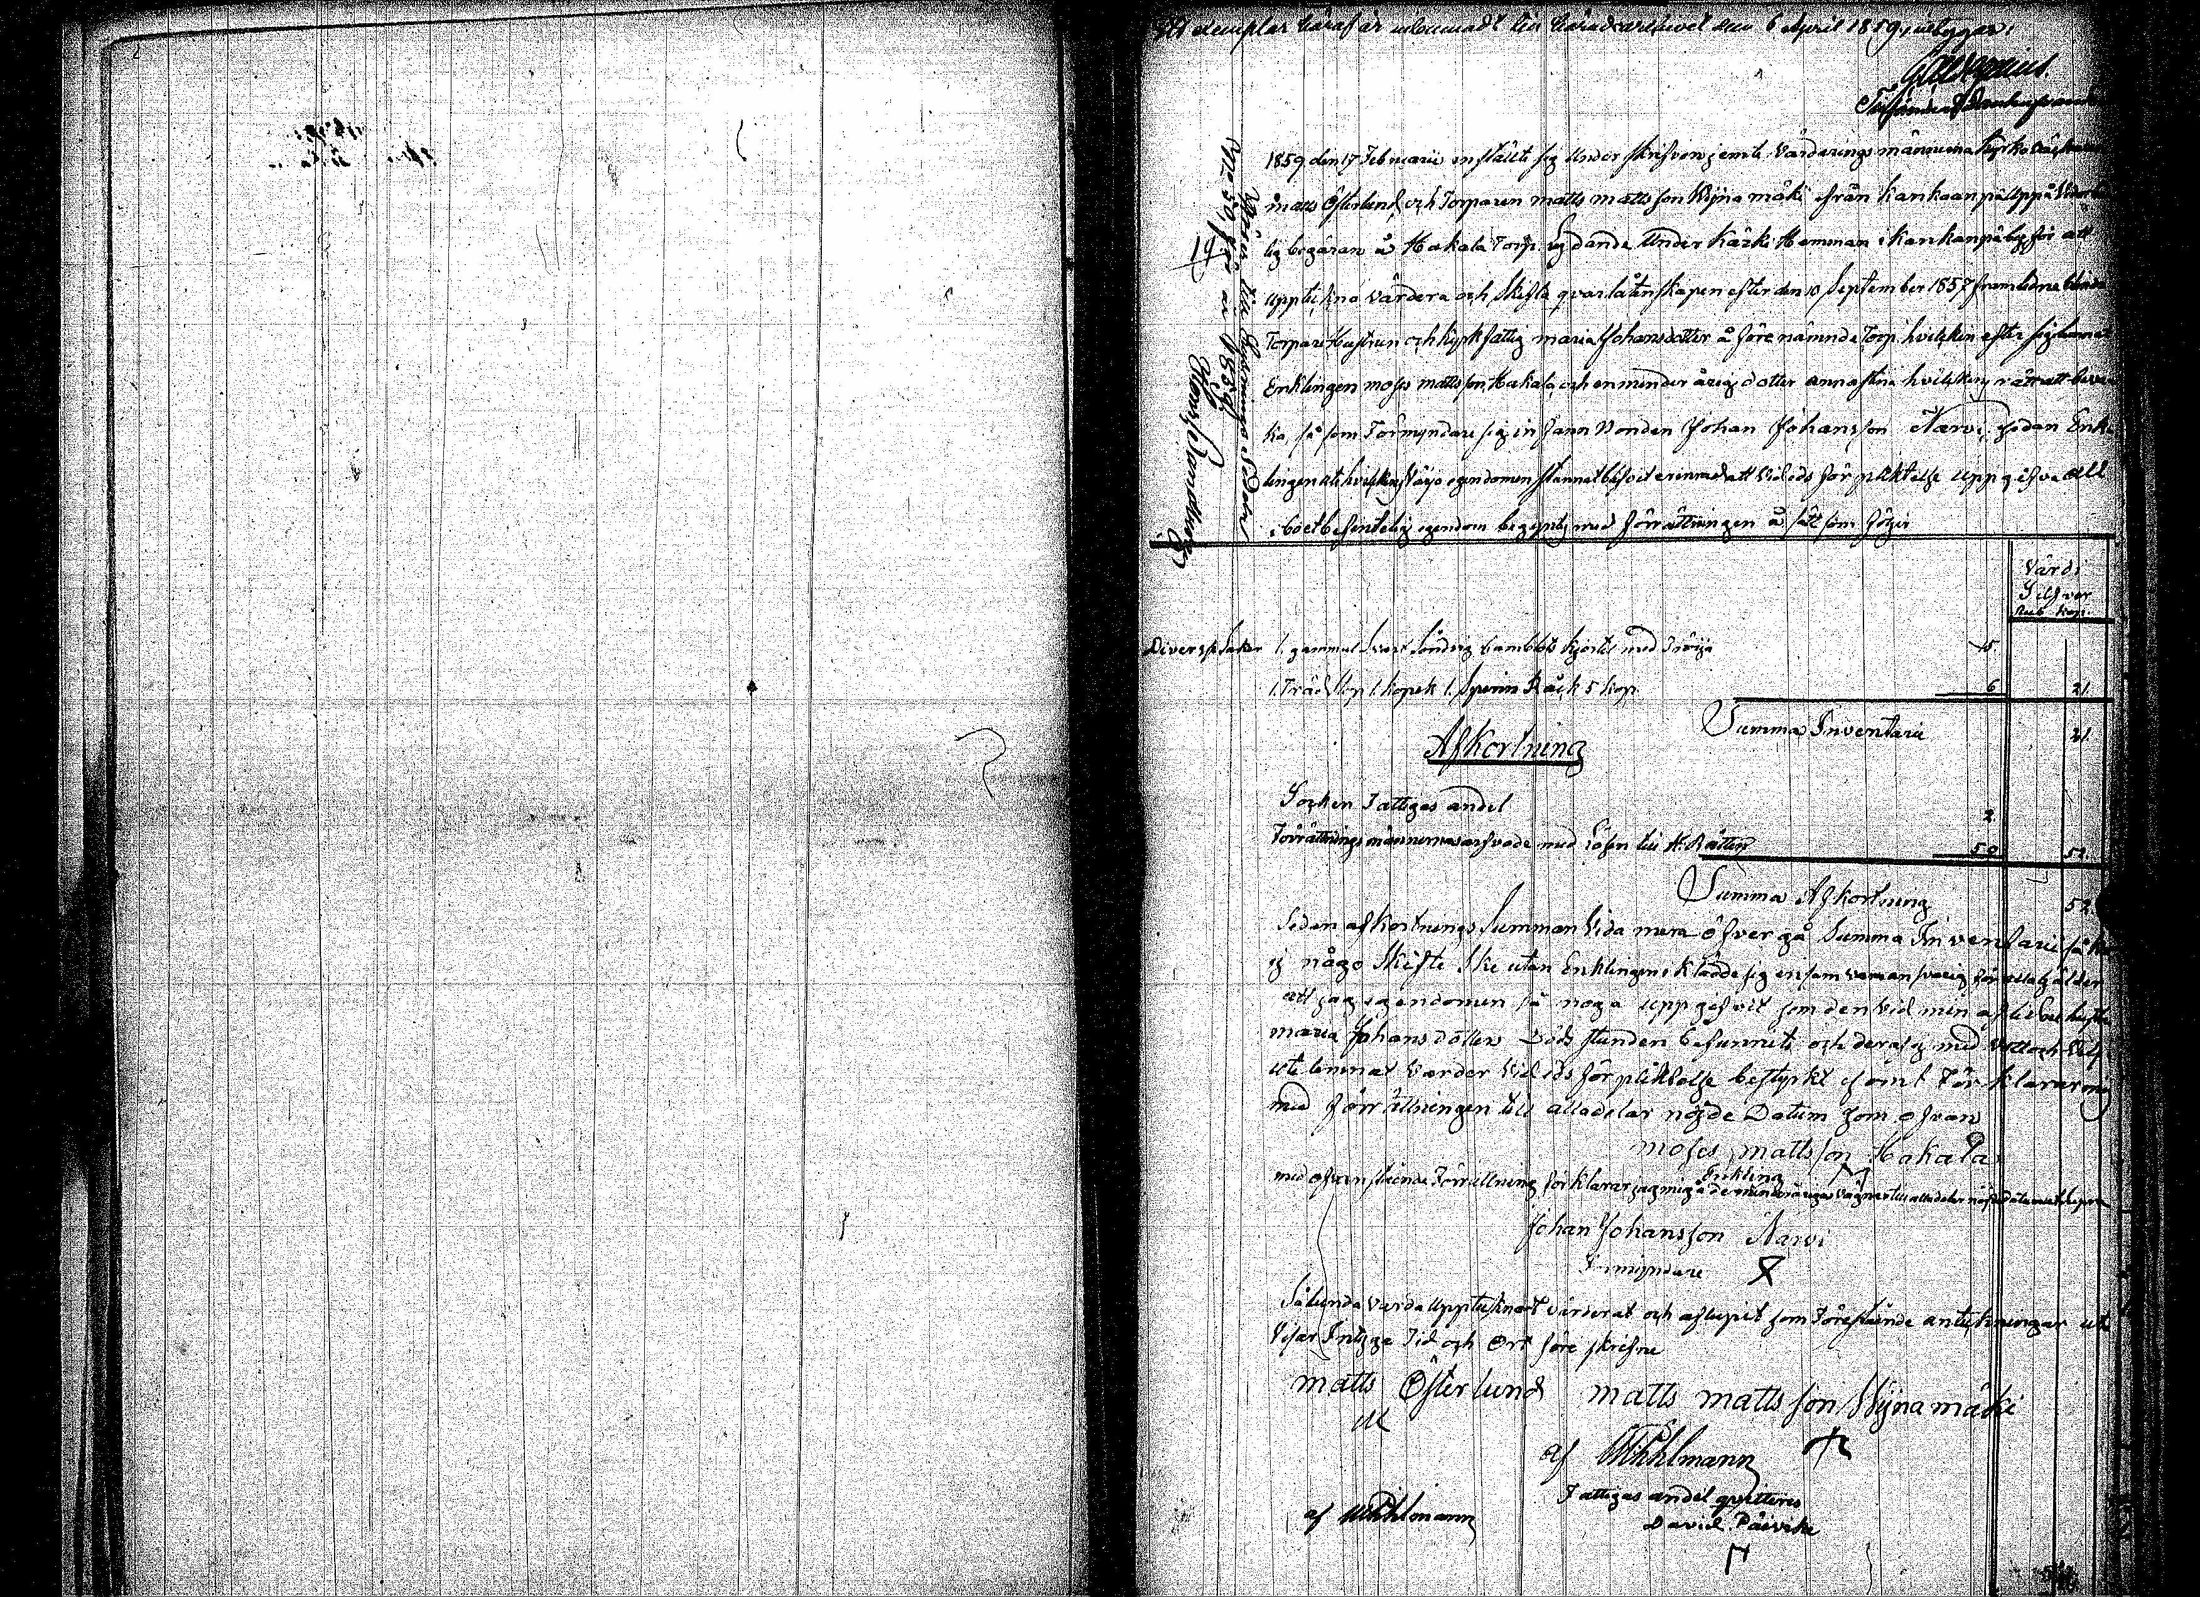 Ett exemplar häraf är inlemnadt till häradsarkivet den 6 April 1859, intygar:
1859 den 17 Februarii instälte sig Under skrifven jemte Värderings männerna
matts Österlund, och Torparen matts matts son Wijna mäki från Kankaanpä Uppå
lig begäran å Hakala Torp lydande Under Kärki Hemman i Kankanpä by för att
uppteckna värdera och Skifta qvarlåtenskapen efter den 10 September 1857 framledne
Torpare Hustrun och kyrk fattig maria Johansdotter å före nämnde Torp hvilken efter sig lemnat
Enklingen moses mattsson Hakala, och en minder årig dotter anna stina hvilkens rätt att beva
ka, så som Förmyndare sig in fann Bonden Johan Johansson Narvi, sedan Enk
lingen uti hvilkens värjo egendomen stannat blifvit erinrad att Vid eds för pliktelse uppgifva all
i boet befintelig egendom begyntes med förrättningen å sätt som följer
17
N:o 50, för år 1859.
Värde i
Silfver
Rub. Kop.
Diverse saker 1. gammal Svart Söndrig kamblots kjortel med Tröija 15
1. Träd stop 1. kopek 1. Spinn Råck 5 kop. 6 21
Summa Inventarii 21
Afkortning
Socken Fattigas andel 2
Förrättnings männernas arfvode med Lösen till H. Rätten 50 52.
Summa Afkortning 52.
Sedan afkortnings Summan Vida mera öfver gå Summa Inventarii så kan
ej någo Skifte Ske utan Enklingen i klädde sig ensam vara ansvarig för alla gälder
att jag egendomen så noga uppgifvit som den Vid min aflidne hustru
maria Johans dotter Döds stunden befunnits och deraf ej med Vett och Vilja
ute lemnat Varder Vid eds för pliktelse bestyrkt samt För klarar mig
med förrättningen till alla delar nöjde Datum som ofvan
moses mattsson Hakala
Enkling
med ofvan stående Förrättning förklarar jag mig å de minderårigas vägnar till alla delar nöjd
Johan Johansson Narvi
Förmyndare
Sålunda varda Upptecknadt värderat och aflupit som Förestående anteckningar ut
Visar Intyga Tid och Ort före skrifne
matts Österlund matts matts son Wijna mäki
af Wihlmann
Fattigas andel qvitteres
David Päivike
af Wihlmann